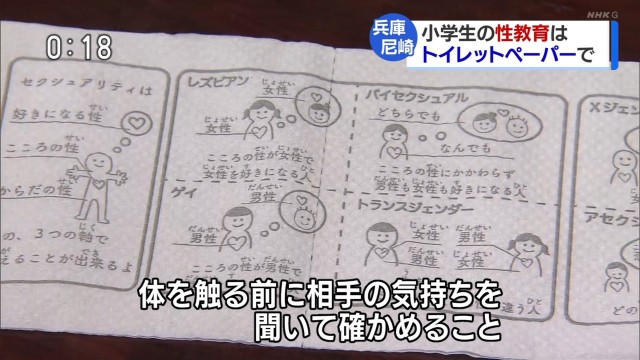 NHK G
0:18
兵庫
尼崎
小学生の性教育は
トイレットペーパーで
セクシュアリティは
好きになる性
こころの性
からだの性
の、3つの軸で
えることが出来るよ
レズビアン
女性
女性
こころの性が女性で
女性を好きになる人
ゲイ
男性
男性
こころの性が男性で
バイセクシュアル
どちらでも
なんでも
こころの性にかかわらず
男性も女性も好きになる
トランスジェンダー
女性
男性
男性
女性
違う人
Xジェン
アセク
どの
体を触る前に相手の気持ちを
聞いて確かめること